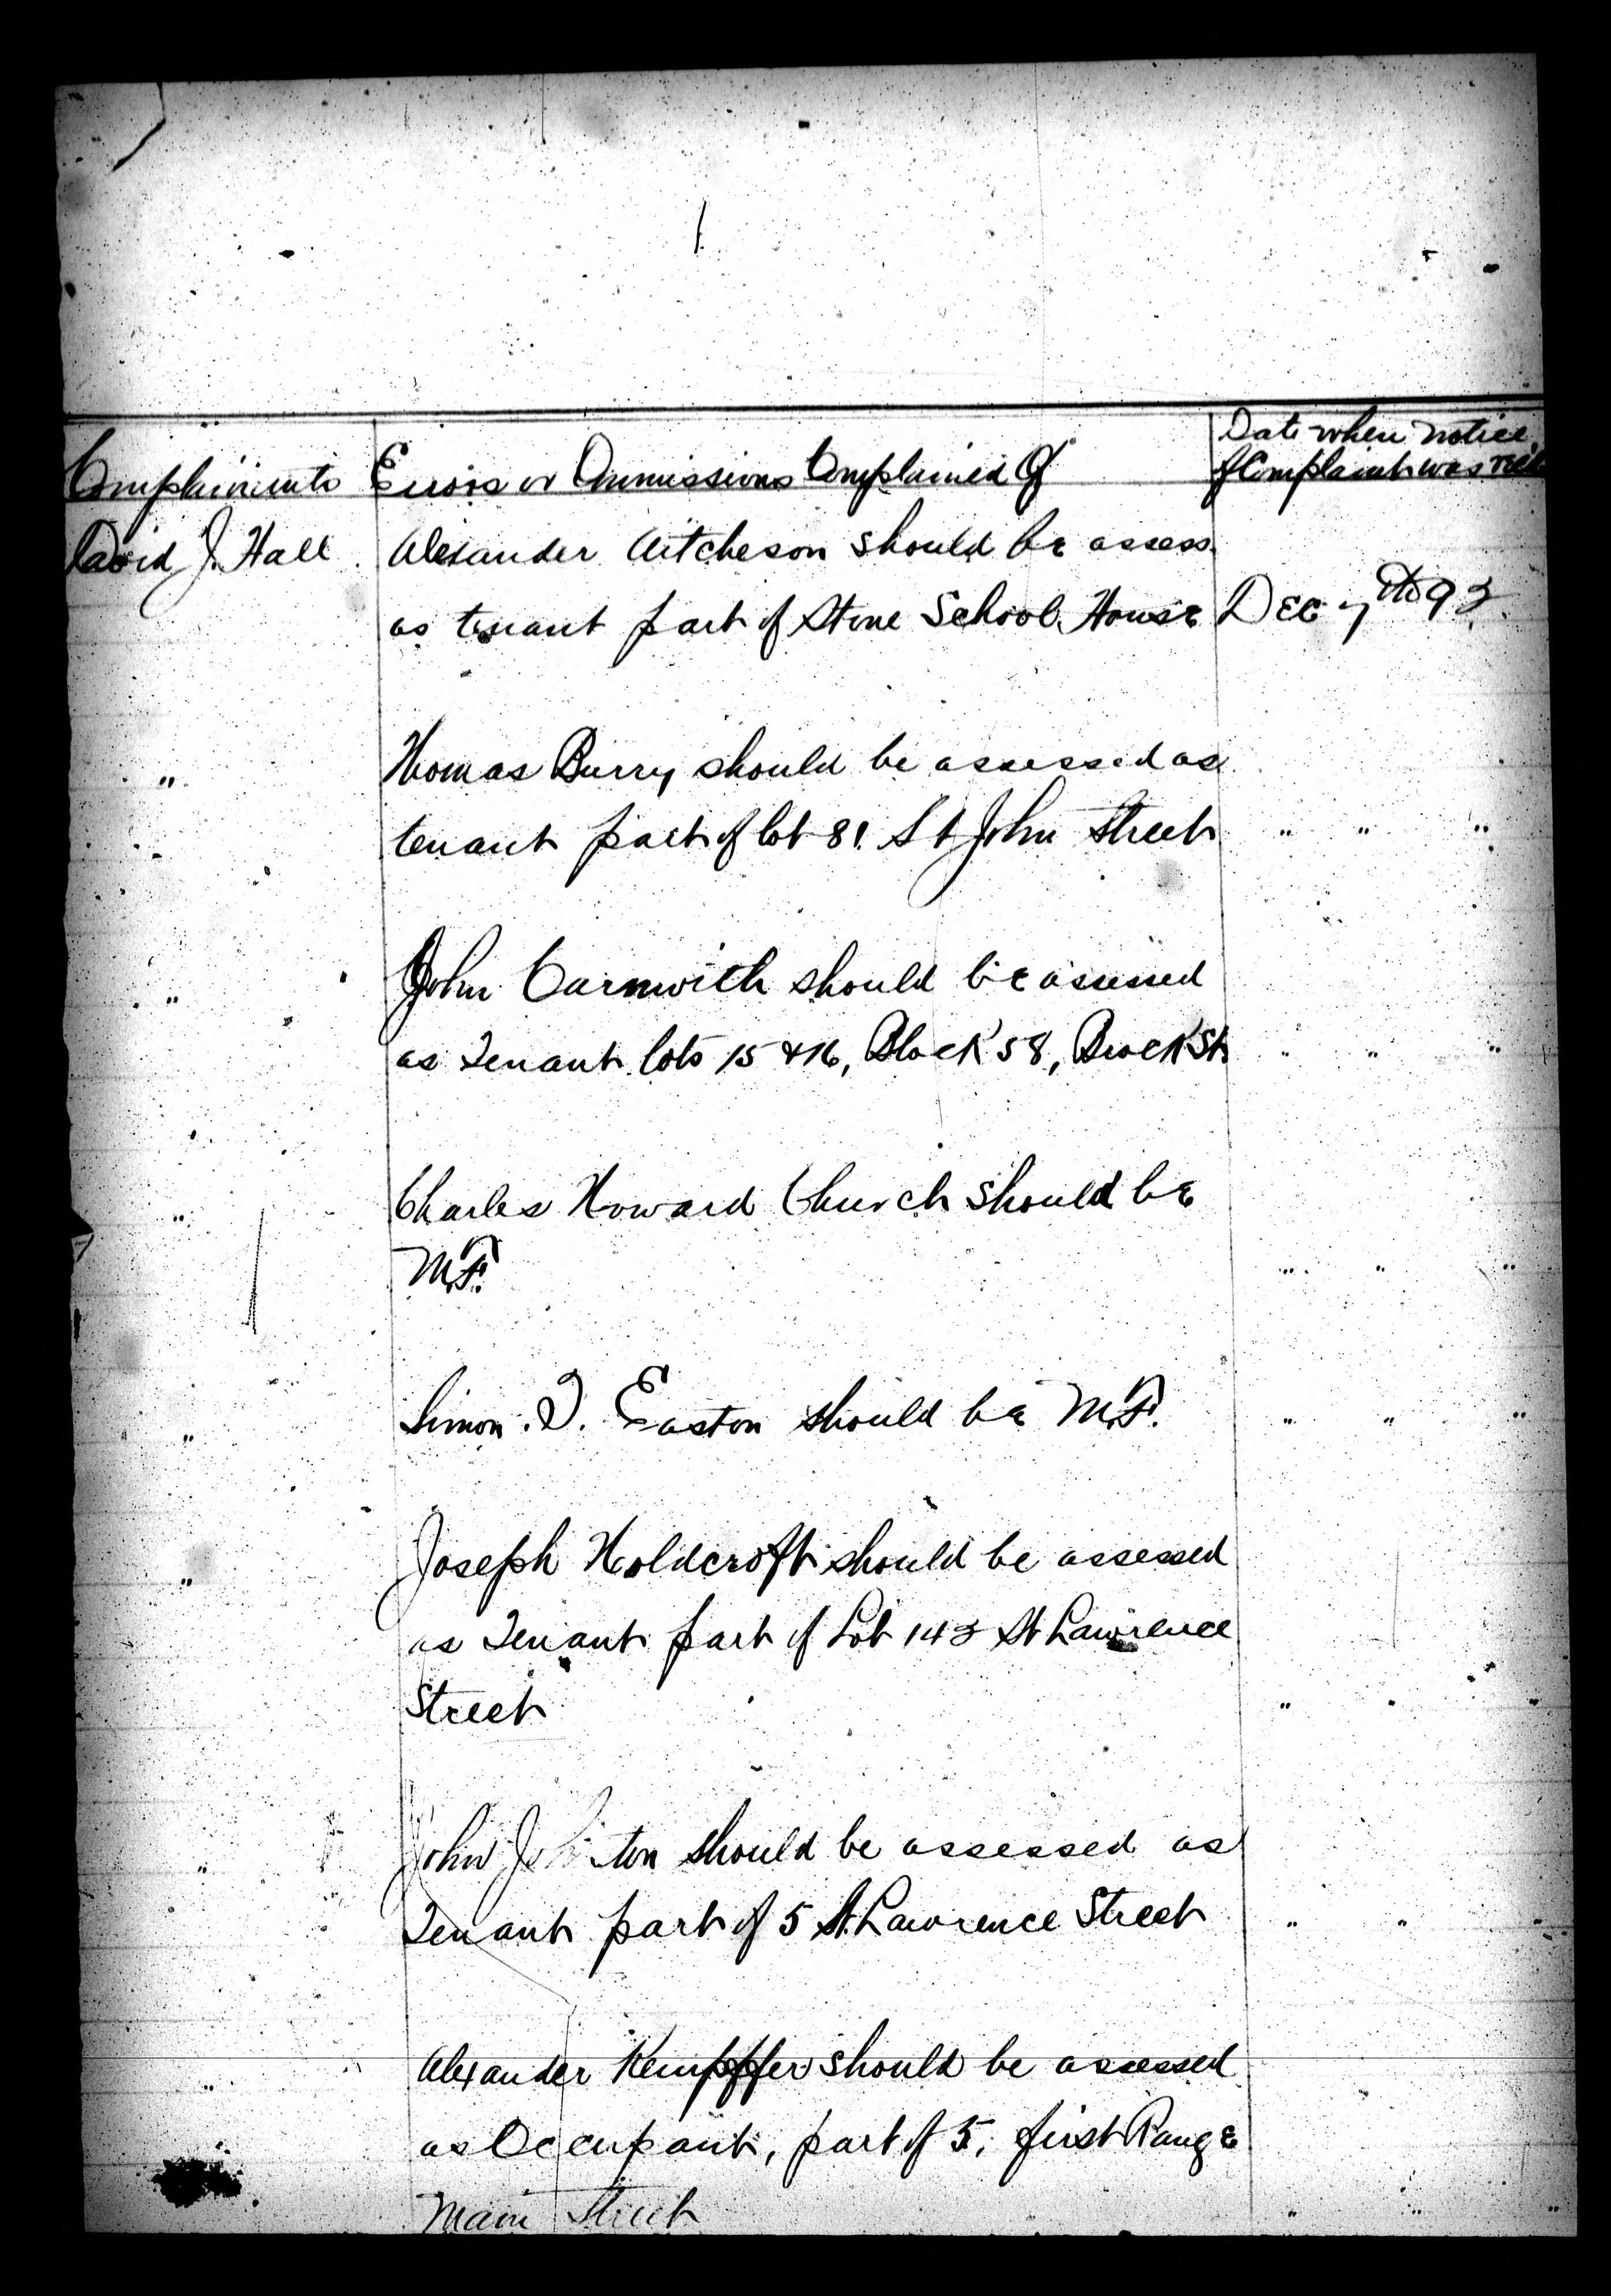 1
Date when notice
Complainants Errors or Ommissions Complained Of of Complaint was
David J. Hall Alexander Aitcheson should be assess
as tenant part of Stone School House Dec 7th 93
" Thomas Burry should be assessed as
tenant part of lot 81 St John Street " " "
" John Carnwith should be assessed
as Tenant lots 15 & 16, Block 58, Brock St " " "
" Charles Howard Church should be
M.F. " " "
" Simon. T. Easton should be M.F. " " "
" Joseph Holdcroft should be assessed
as Tenant part of Lot 143 St Lawrence
Street " " "
" John should be assessed as
Tenant part of 5 St. Lawrence Street " " "
" Alexander Kempffer should be assessed
as Occupant, part of 5, first Range
Main Street " " "